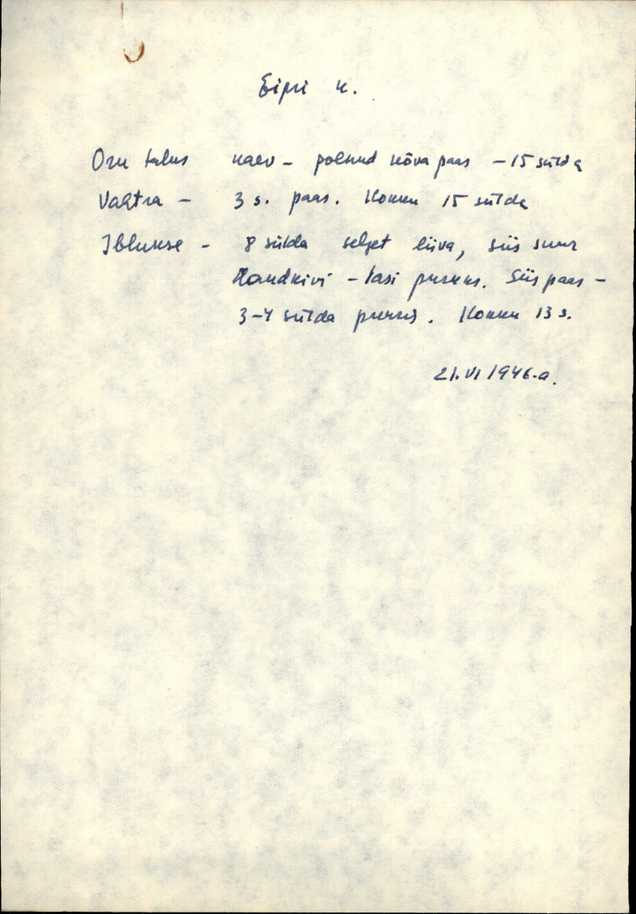 Eipri k.
Oru talus kaev - polnud kõva paas - 15 sülda
Vahtra - 3 s. paas. Kokku 15 sülda
Iblukse - 8 sülda selget liiva, siis suur
Raudkivi - lasi puruks. Siis paas -
3-4 sülda puruks. Kokku 13 s.
21.VI 1946.a.